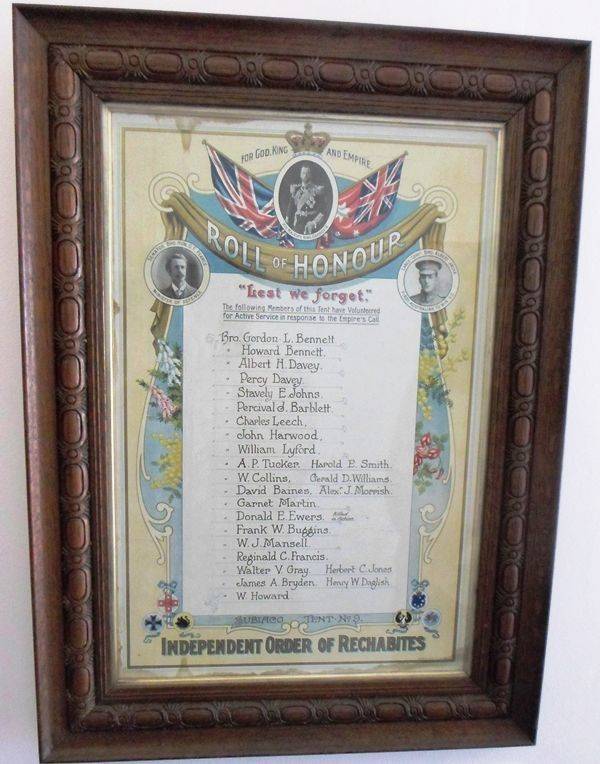 FOR GOD, KING AND EMPIRE
ROLL OF HONOUR
"Lest we forget."
The following Members of this Tent have Volunteered
for Active Service in response to the Empire's Call
Bro. Gordon L. Bennett
" Howard Bennett.
" Albert H. Davey.
" Percy Davey.
" Stavely E. Johns.
" Percival J. Barblett.
" Charles Leech.
" John Harwood.
" William Lyford.
" A. P. Tucker. Harold E. Smith.
" W. Collins, Gerald D. Williams.
" David Baines. Alexr. J. Morrish.
" Garnet Martin.
" Donald E. Ewers. Killed in Action
" Frank W. Buggins.
" W. J. Mansell.
" Reginald C. Francis.
" Walter V. Gray. Herbert C. Jones
" James A. Bryden. Henry W. Daglish
" W. Howard
SUBIACO TENT No 9.
INDEPENDENT ORDER OF RECHABITES